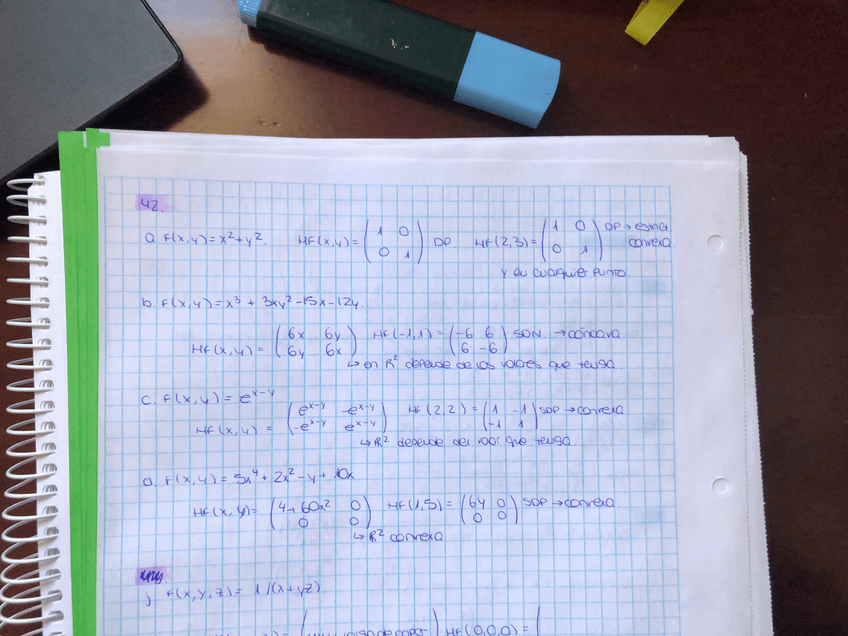 42.
a. F(x,y)=x²+y². HF(x,y)=(1 0 / 0 1) DP HF(2,3)=(1 0 / 0 1) DP → estrict convexa
y en cualquier punto.
b. F(x,y)=x³ + 3xy² -15x -12y.
HF(x,y) = (6x 6y / 6y 6x) HF(-1,1) = (-6 6 / 6 -6) SDN → cóncava
↳ en R² depende de los valores que tenga.
c. F(x,y) = e^(x-y)
HF(x,y) = (e^(x-y) -e^(x-y) / -e^(x-y) e^(x-y)) HF(2,2) = (1 -1 / -1 1) SDP → convexa
↳ R² depende del valor que tenga.
d. F(x,y) = 5x⁴ + 2x² - y + 10x
HF(x,y) = (4+60x² 0 / 0 0) HF(1,5) = (64 0 / 0 0) SDP → convexa
↳ R² convexa
j. F(x,y,z) = 1/(x+yz)
HF(0,0,0) = (